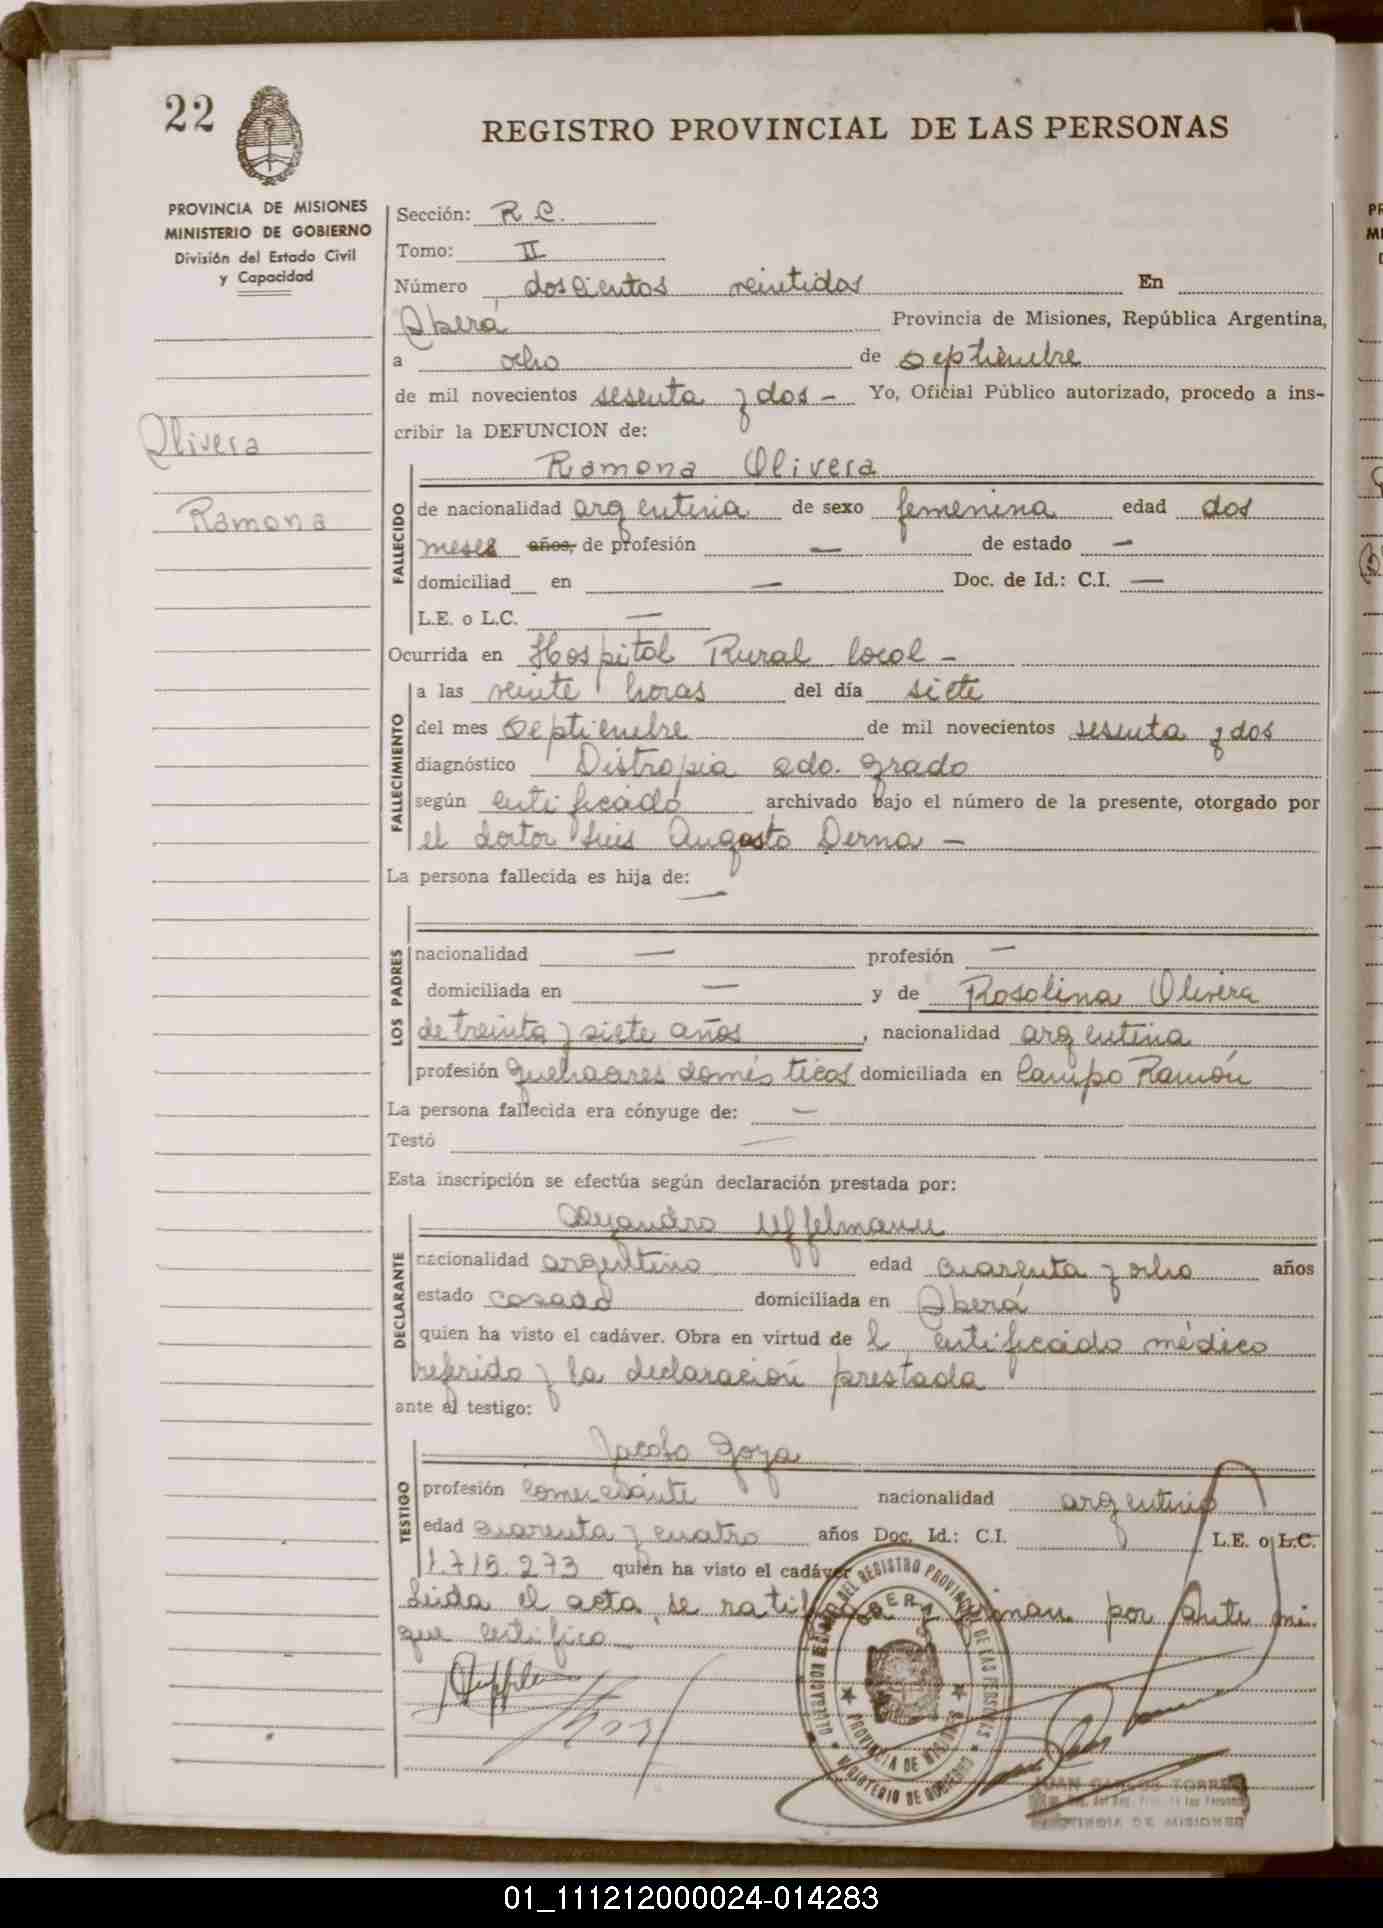 22
REGISTRO PROVINCIAL DE LAS PERSONAS
PROVINCIA DE MISIONES
MINISTERIO DE GOBIERNO
División del Estado Civil
y Capacidad
Olivera
Ramona
Sección: R C.
Tomo: II
Número doscientos veintidos En
Oberá Provincia de Misiones, República Argentina,
a ocho de septiembre
de mil novecientos sesenta y dos - Yo, Oficial Público autorizado, procedo a ins-
cribir la DEFUNCION de:
Ramona Olivera
FALLECIDO
de nacionalidad argentina de sexo femenina edad dos
meses años, de profesión — de estado —
domiciliad en — Doc. de Id.: C.I. —
L.E. o L.C. —
Ocurrida en Hospital Rural local -
FALLECIMIENTO
a las veinte horas del día siete
del mes septiembre de mil novecientos sesenta y dos
diagnóstico Distropia 2do. grado
según certificado archivado bajo el número de la presente, otorgado por
el doctor Luis Augusto Derna -
La persona fallecida es hija de: —
LOS PADRES
nacionalidad — profesión —
domiciliada en — y de Rosolina Olivera
de treinta y siete años, nacionalidad argentina
profesión quehaceres domésticos domiciliada en Campo Ramón
La persona fallecida era cónyuge de: —
Testó —
Esta inscripción se efectúa según declaración prestada por:
Alejandro Uffelmann
DECLARANTE
nacionalidad argentino edad cuarenta y ocho años
estado casado domiciliada en Oberá
quien ha visto el cadáver. Obra en virtud de l certificado médico
referido y la declaración prestada
ante el testigo:
Jacobo Goya
TESTIGO
profesión comerciante nacionalidad argentino
edad cuarenta y cuatro años Doc. Id.: C.I. L.E. o L.C.
1.715.273 quien ha visto el cadáver
Leída el acta, se ratifican y firman por ante mi
que certifico
DELEGACION DEL REGISTRO PROVINCIAL DE LAS PERSONAS
OBERA
PROVINCIA DE MISIONES
MINISTERIO DE GOBIERNO
JUAN CARLOS TORRES
PROVINCIA DE MISIONES
01_111212000024-014283